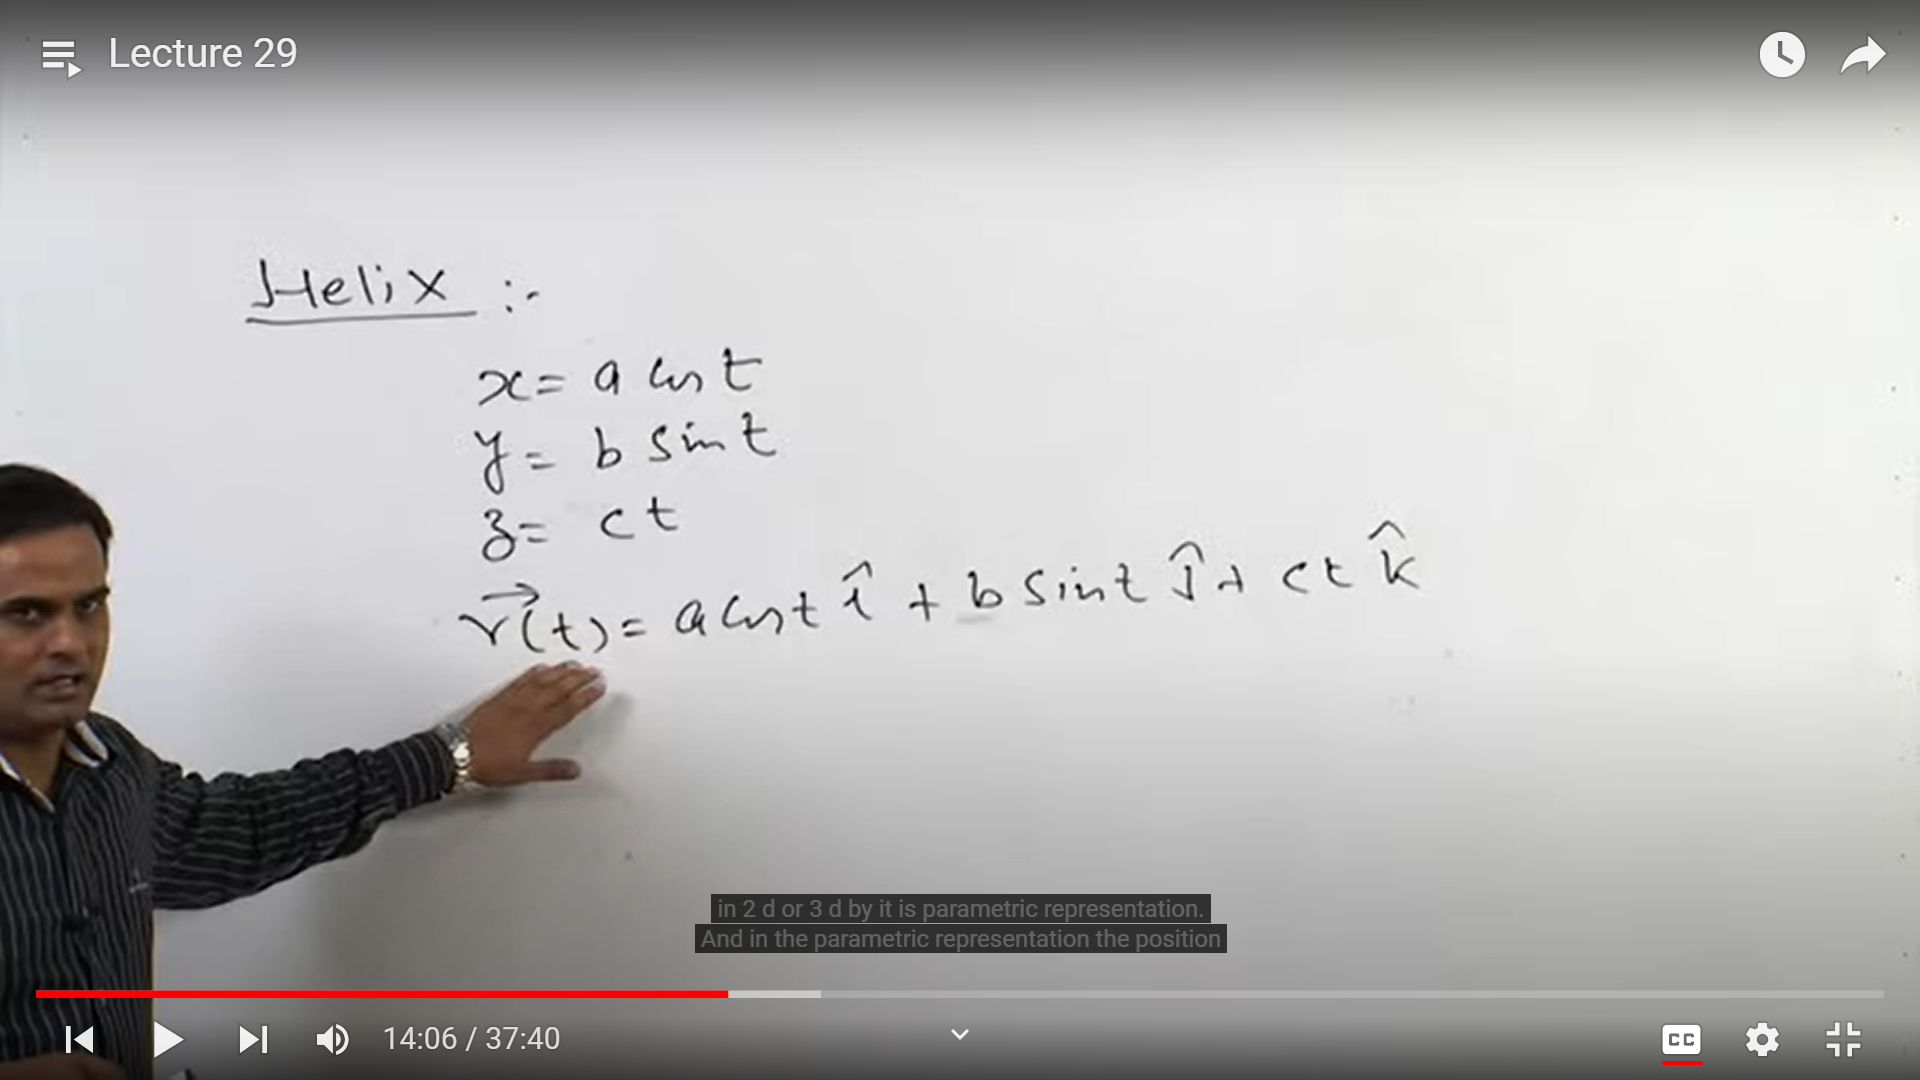 Lecture 29
Helix :-
x = a cos t
y = b sin t
z = c t
r⃗(t) = a cos t î + b sin t ĵ + c t k̂
in 2 d or 3 d by it is parametric representation.
And in the parametric representation the position
14:06 / 37:40
CC